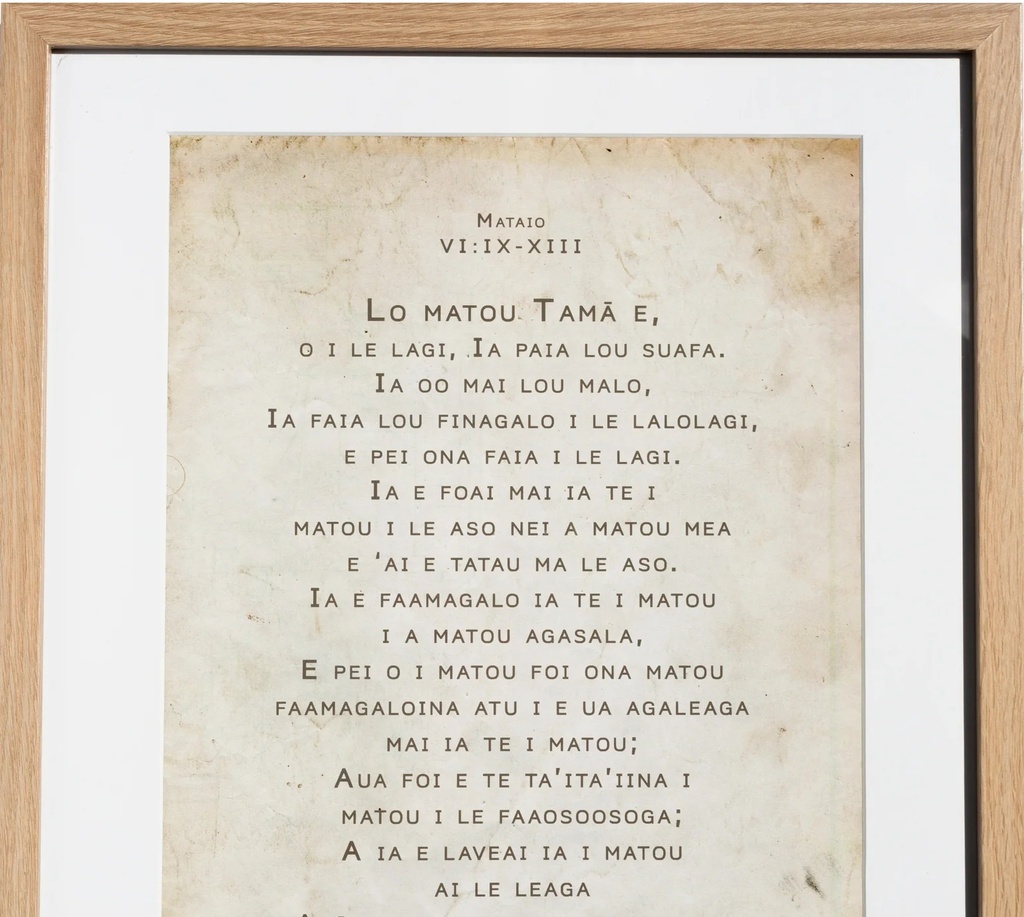 Mataio
VI:IX-XIII
Lo matou Tamā e,
o i le lagi, Ia paia lou suafa.
Ia oo mai lou malo,
Ia faia lou finagalo i le lalolagi,
e pei ona faia i le lagi.
Ia e foai mai ia te i
matou i le aso nei a matou mea
e ‘ai e tatau ma le aso.
Ia e faamagalo ia te i matou
i a matou agasala,
E pei o i matou foi ona matou
faamagaloina atu i e ua agaleaga
mai ia te i matou;
Aua foi e te ta'ita'iina i
matou i le faaosoosoga;
A ia e laveai ia i matou
ai le leaga